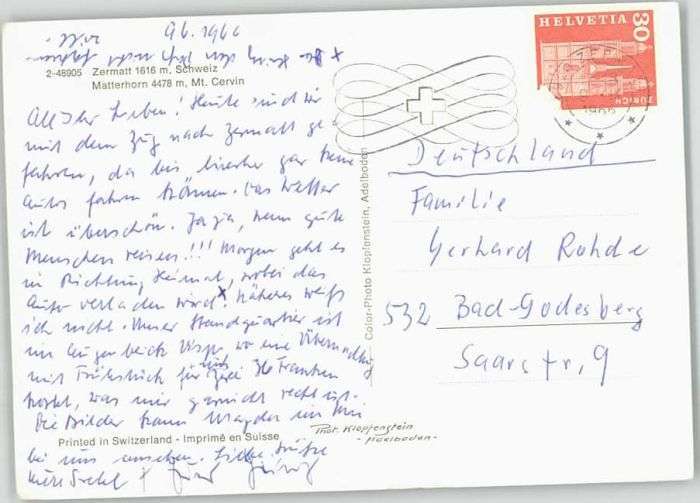 9.6. 1966
2-48905 Zermatt 1616 m, Schweiz
Matterhorn 4478 m, Mt. Cervin
All Ihr Lieben! Heute sind wir
mit dem Zug nach Zermatt ge-
fahren, da bis hierher gar keine
Autos fahren können. Das Wetter
ist überschön. Ja ja, wenn gute
Menschen reisen!!! Morgen geht es
in Richtung Heimat, wobei das
Auto verladen wird. x Näheres weiß
ich nicht. Unser Standquartier ist
im wo eine Übernachtung
mit Frühstück für uns zwei 36 Franken
kostet, was mir garnicht recht ist.
Die Bilder kann
bei uns ansehen. Liebe Grüße
Printed in Switzerland - Imprimé en Suisse
Color-Photo Klopfenstein, Adelboden
Phot. Klopfenstein
- Adelboden -
HELVETIA
30
ZÜRICH
1966
Deutschland
Familie
Gerhard Rohde
532 Bad-Godesberg
Saarstr, 9